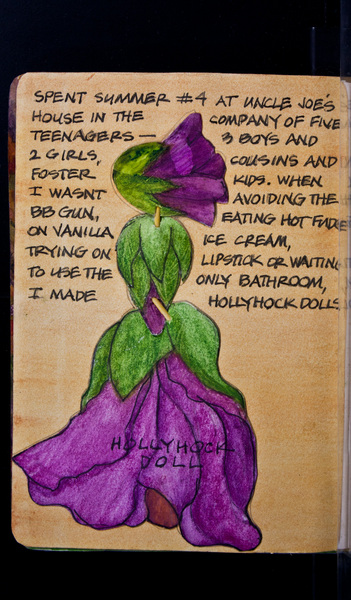 SPENT SUMMER #4 AT UNCLE JOE'S
HOUSE IN THE COMPANY OF FIVE
TEENAGERS — 3 BOYS AND
2 GIRLS, COUSINS AND
FOSTER KIDS. WHEN
I WASNT AVOIDING THE
BB GUN, EATING HOT FUDGE
ON VANILLA ICE CREAM,
TRYING ON LIPSTICK OR WAITING
TO USE THE ONLY BATHROOM,
I MADE HOLLYHOCK DOLLS
HOLLYHOCK
DOLL